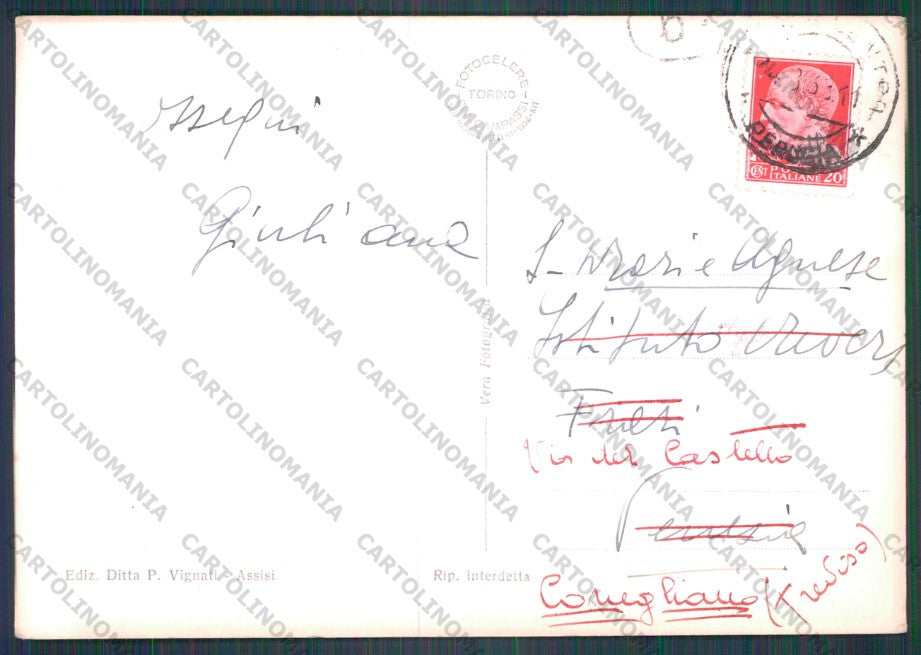 Ossequi
Giuliana
FOTOCELERE
TORINO
PERUGIA
CENT POSTE ITALIANE 20
S- Orazi e Agnese
Istituto
Via del Castello
Perugia
Conegliano (Treviso)
Vera Fotografia
Ediz. Ditta P. Vignati - Assisi
Rip. interdetta
CARTOLINOMANIA